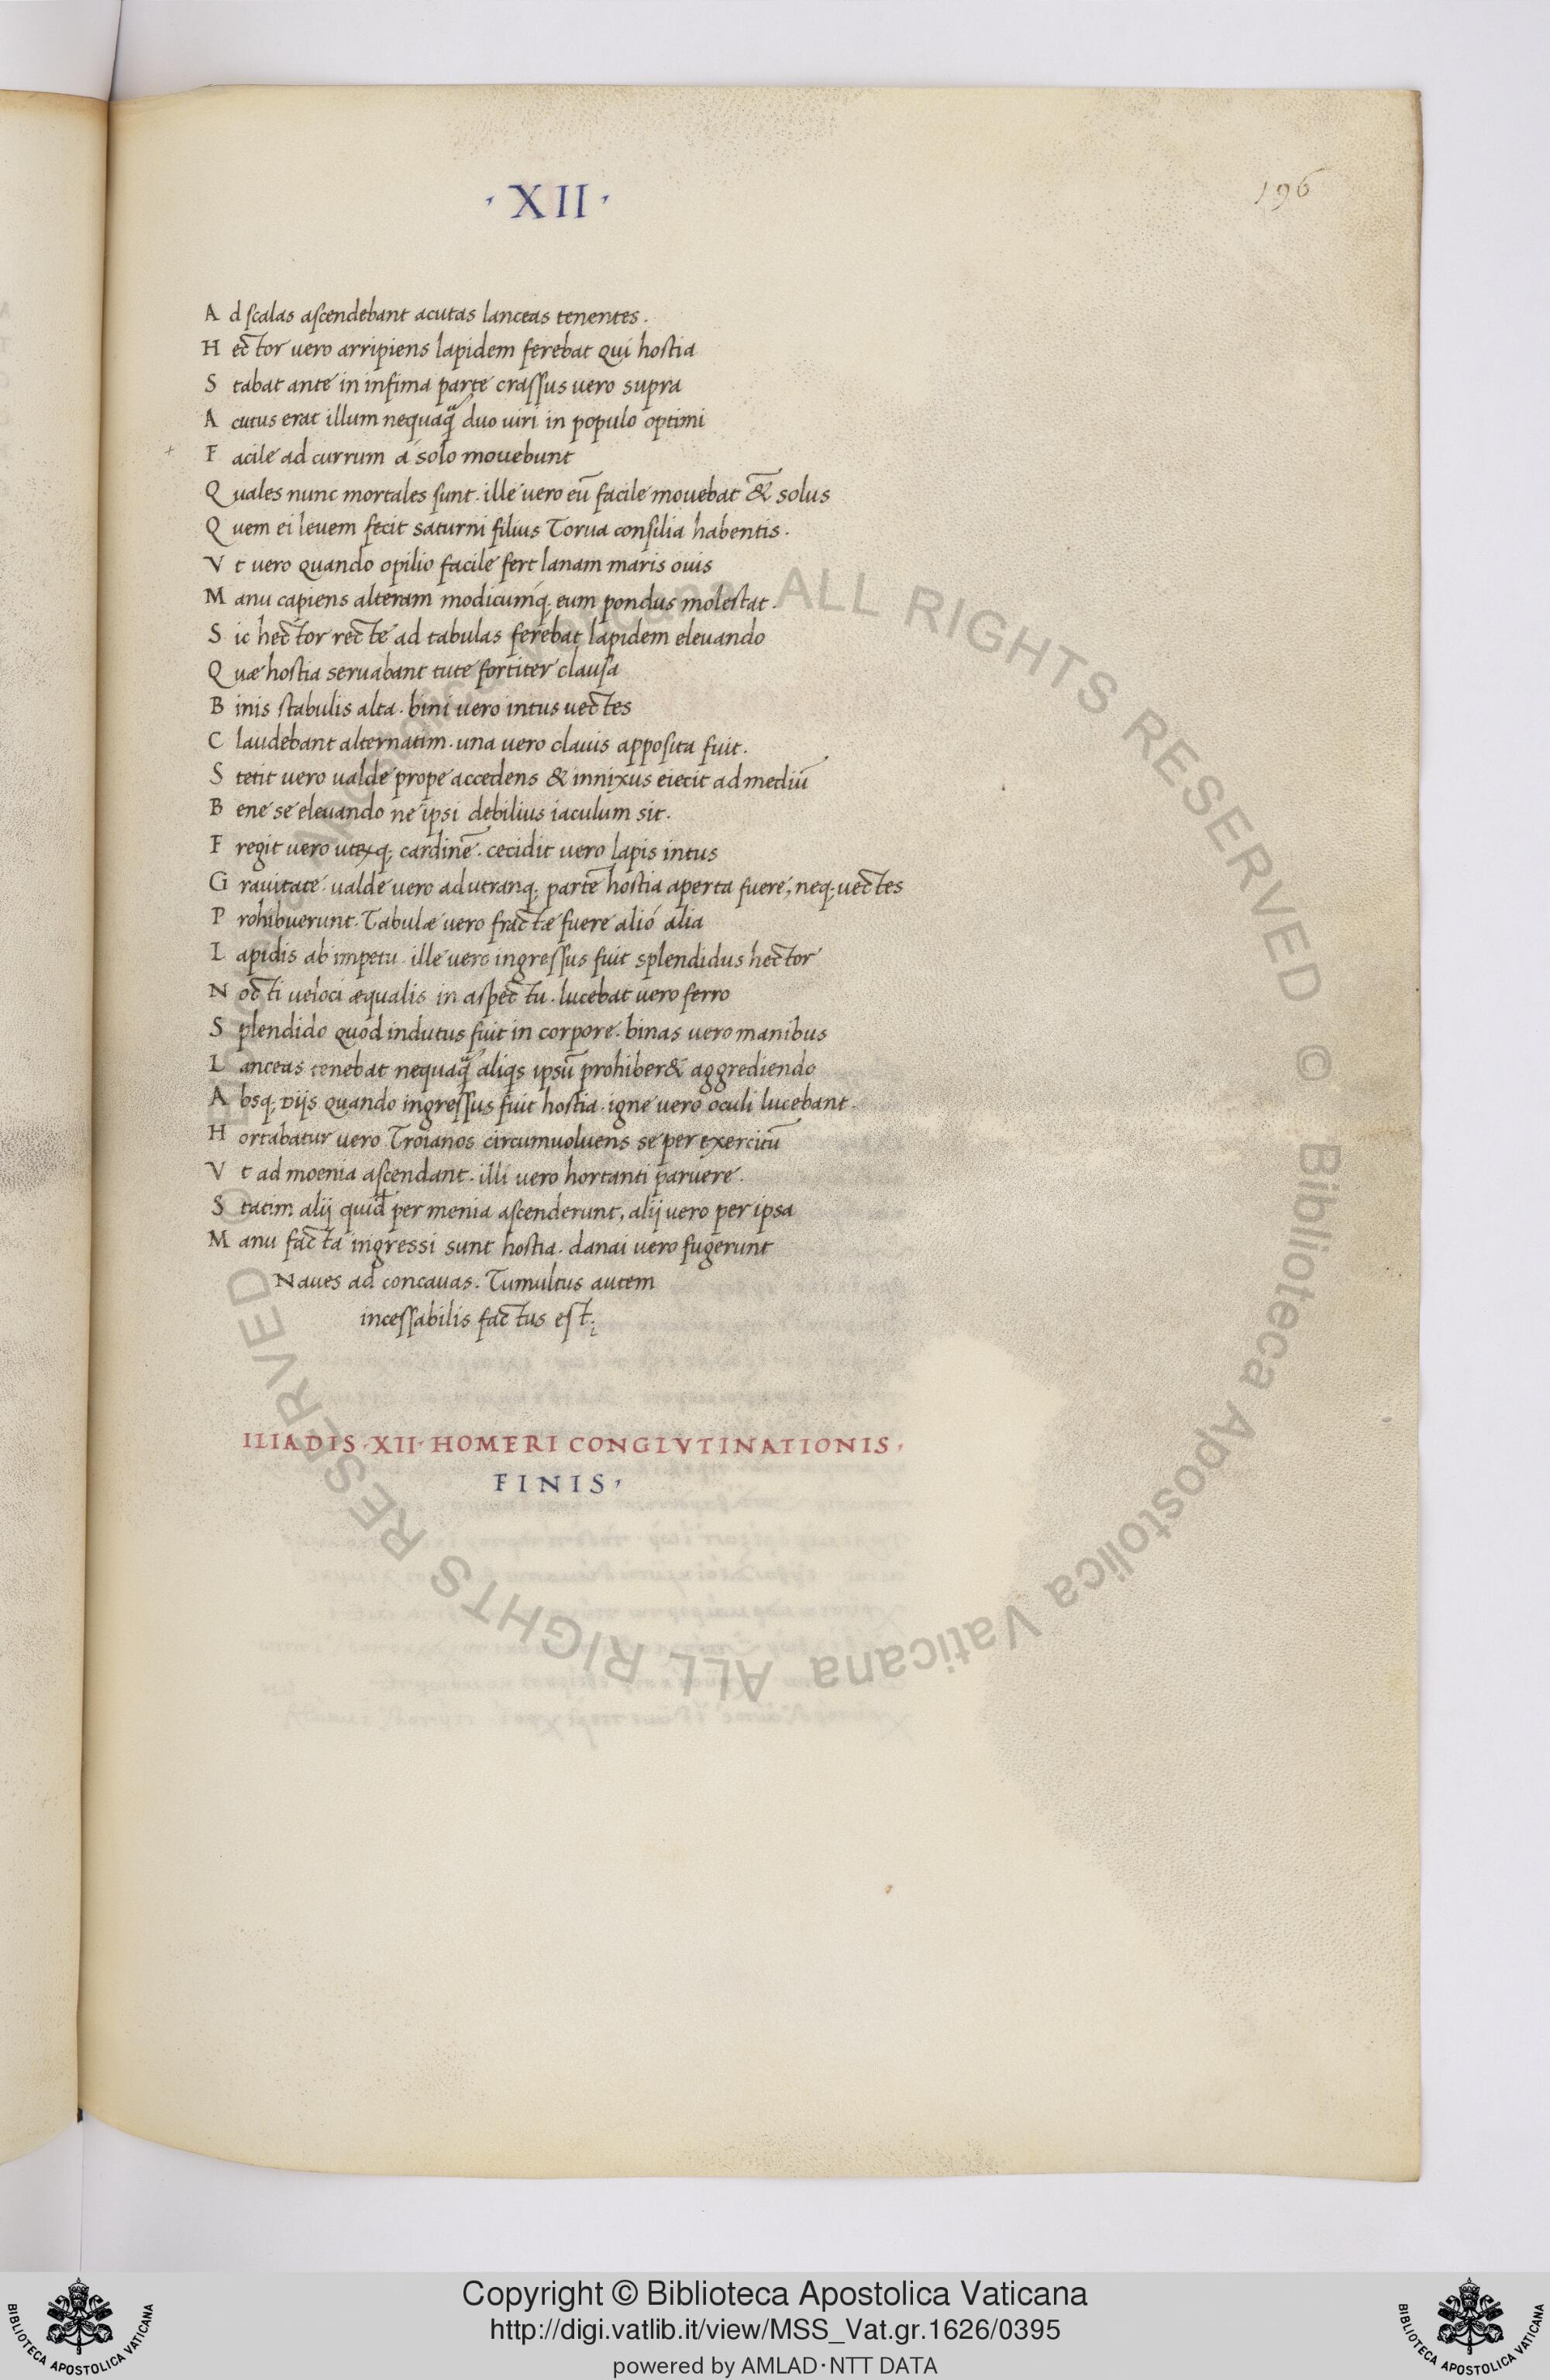 · XII ·
196
Ad scalas ascendebant acutas lanceas tenentes.
Hector uero arripiens lapidem ferebat qui hostia
Stabat ante in infima parte crassus uero supra
Acutus erat illum nequaq̃ duo uiri in populo optimi
+ Facile ad currum á solo mouebunt
Quales nunc mortales sunt. ille uero eũ facile mouebat & solus
Quem ei leuem fecit saturni filius Torua consilia habentis.
Vt uero quando opilio facile fert lanam maris ouis
Manu capiens alteram modicumq; eum pondus molestat.
Sic hector recte ad tabulas ferebat lapidem eleuando
Quæ hostia seruabant tute fortiter clausa
Binis stabulis alta. bini uero intus uectes
Claudebant alternatim. una uero clauis apposita fuit.
Stetit uero ualde prope accedens & innixus eiecit ad mediũ
Bene se eleuando ne ipsi debilius iaculum sit.
Fregit uero utexq; cardinẽ. cecidit uero lapis intus
Grauitate. ualde uero ad utranq; partẽ hostia aperta fuere, neq; uectes
Prohibuerunt. Tabulæ uero fractæ fuere alió alia
Lapidis ab impetu. ille uero ingressus fuit splendidus hector
Nocti ueloci æqualis in aspectu. lucebat uero ferro
Splendido quod indutus fuit in corpore. binas uero manibus
Lanceas tenebat nequaq̃ aliq̃s ipsũ prohiber& aggrediendo
Absq; diis quando ingressus fuit hostia. igne uero oculi lucebant.
Hortabatur uero Troianos circumuoluens se per exercitũ
Vt ad moenia ascendant. illi uero hortanti paruere.
Statim alij quid̃ per menia ascenderunt, alij uero per ipsa
Manu facta ingressi sunt hostia. danai uero fugerunt
Naues ad concauas. Tumultus autem
incessabilis factus est;
ILIADIS · XII · HOMERI CONGLVTINATIONIS ,
FINIS ,
© Biblioteca Apostolica Vaticana ALL RIGHTS RESERVED © Biblioteca Apostolica Vaticana ALL RIGHTS RESERVED
Copyright © Biblioteca Apostolica Vaticana
http://digi.vatlib.it/view/MSS_Vat.gr.1626/0395
powered by AMLAD·NTT DATA
BIBLIOTECA APOSTOLICA VATICANA
BIBLIOTECA APOSTOLICA VATICANA